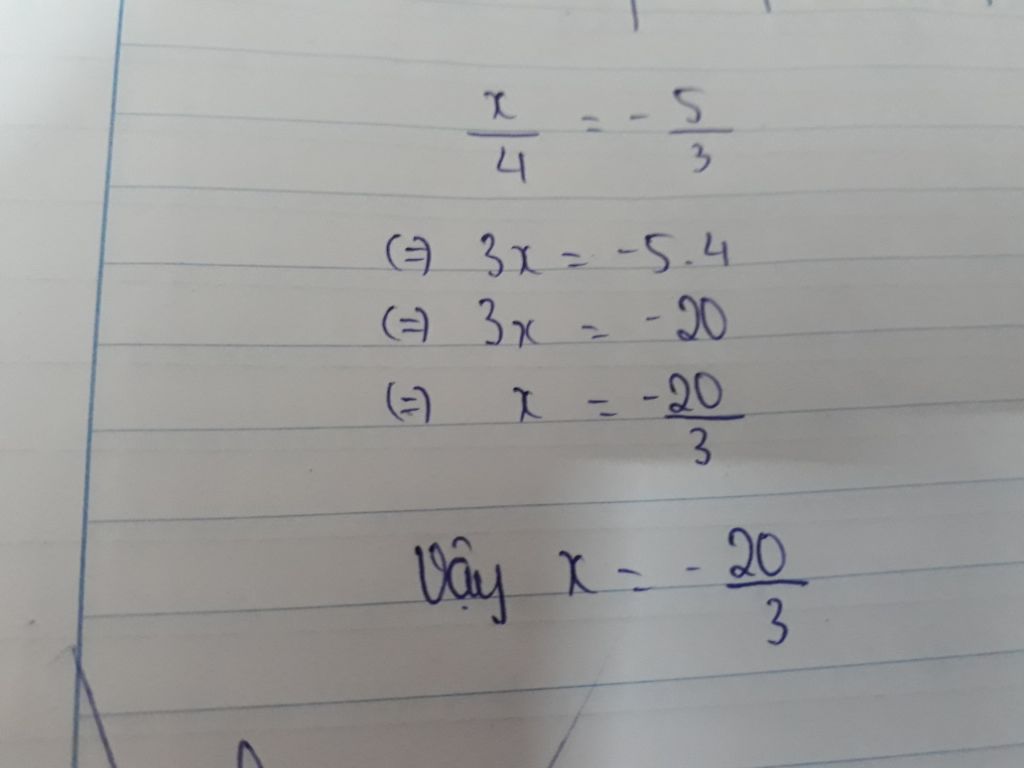 x/4 = - 5/3
(=) 3x = -5.4
(=) 3x = -20
(=) x = -20/3
Vậy x = - 20/3